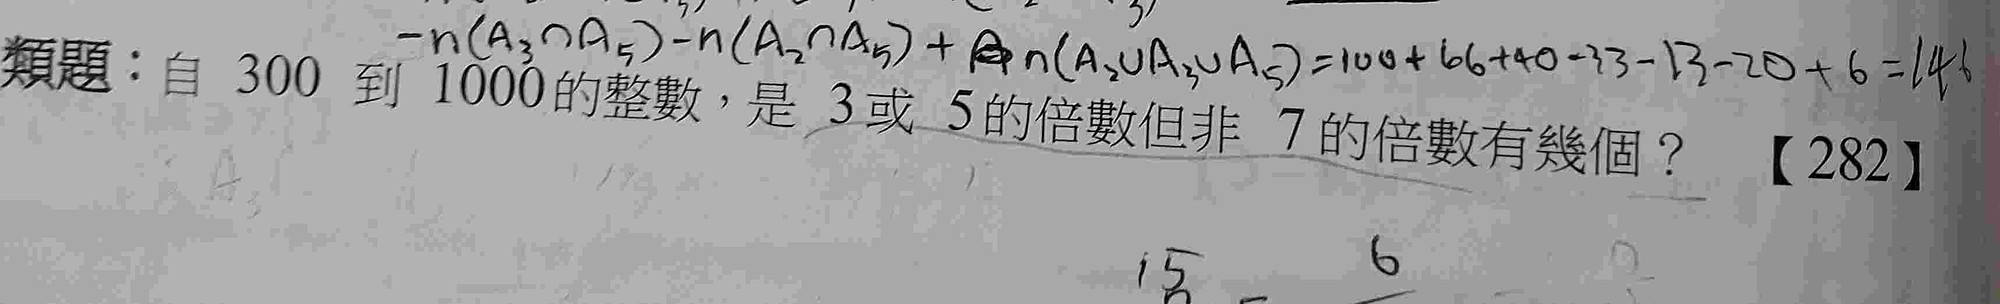 -n(A₃∩A₅)-n(A₂∩A₅)+n(A₂∪A₃∪A₅)=100+66+40-33-13-20+6=146
類題：自 300 到 1000的整數，是 3或 5的倍數但非 7的倍數有幾個？ 【282】
A₃
15 6